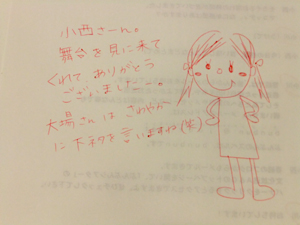 小西さーん。
舞台を見に来て
くれて、ありがとう
ございましたー。
大場さんは、さわやか
に下ネタを言いますね(笑)